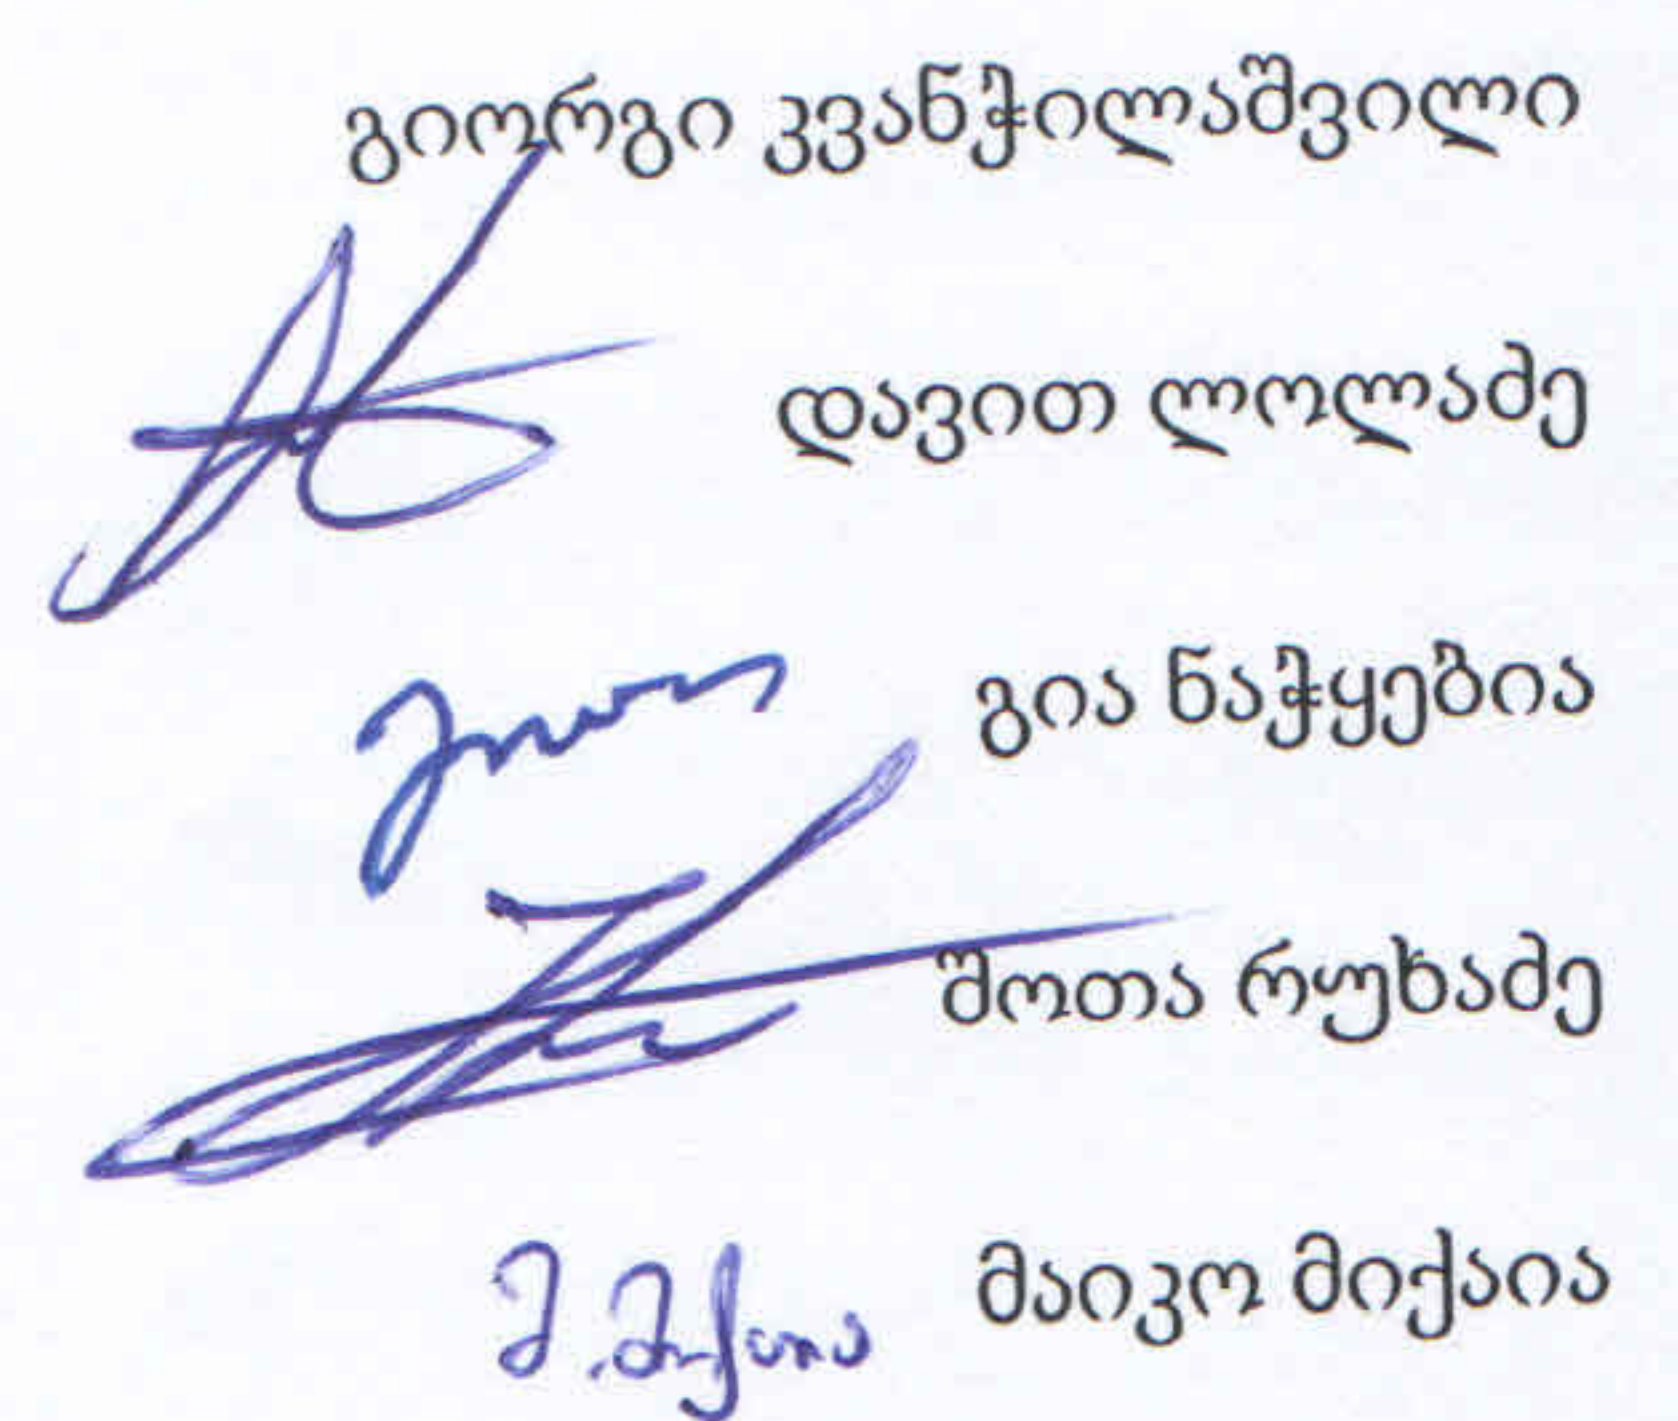 გიორგი კვანჭილაშვილი
დავით ლოლაძე
გია ნაჭყებია
შოთა რუხაძე
მ. მიქაია მაიკო მიქაია